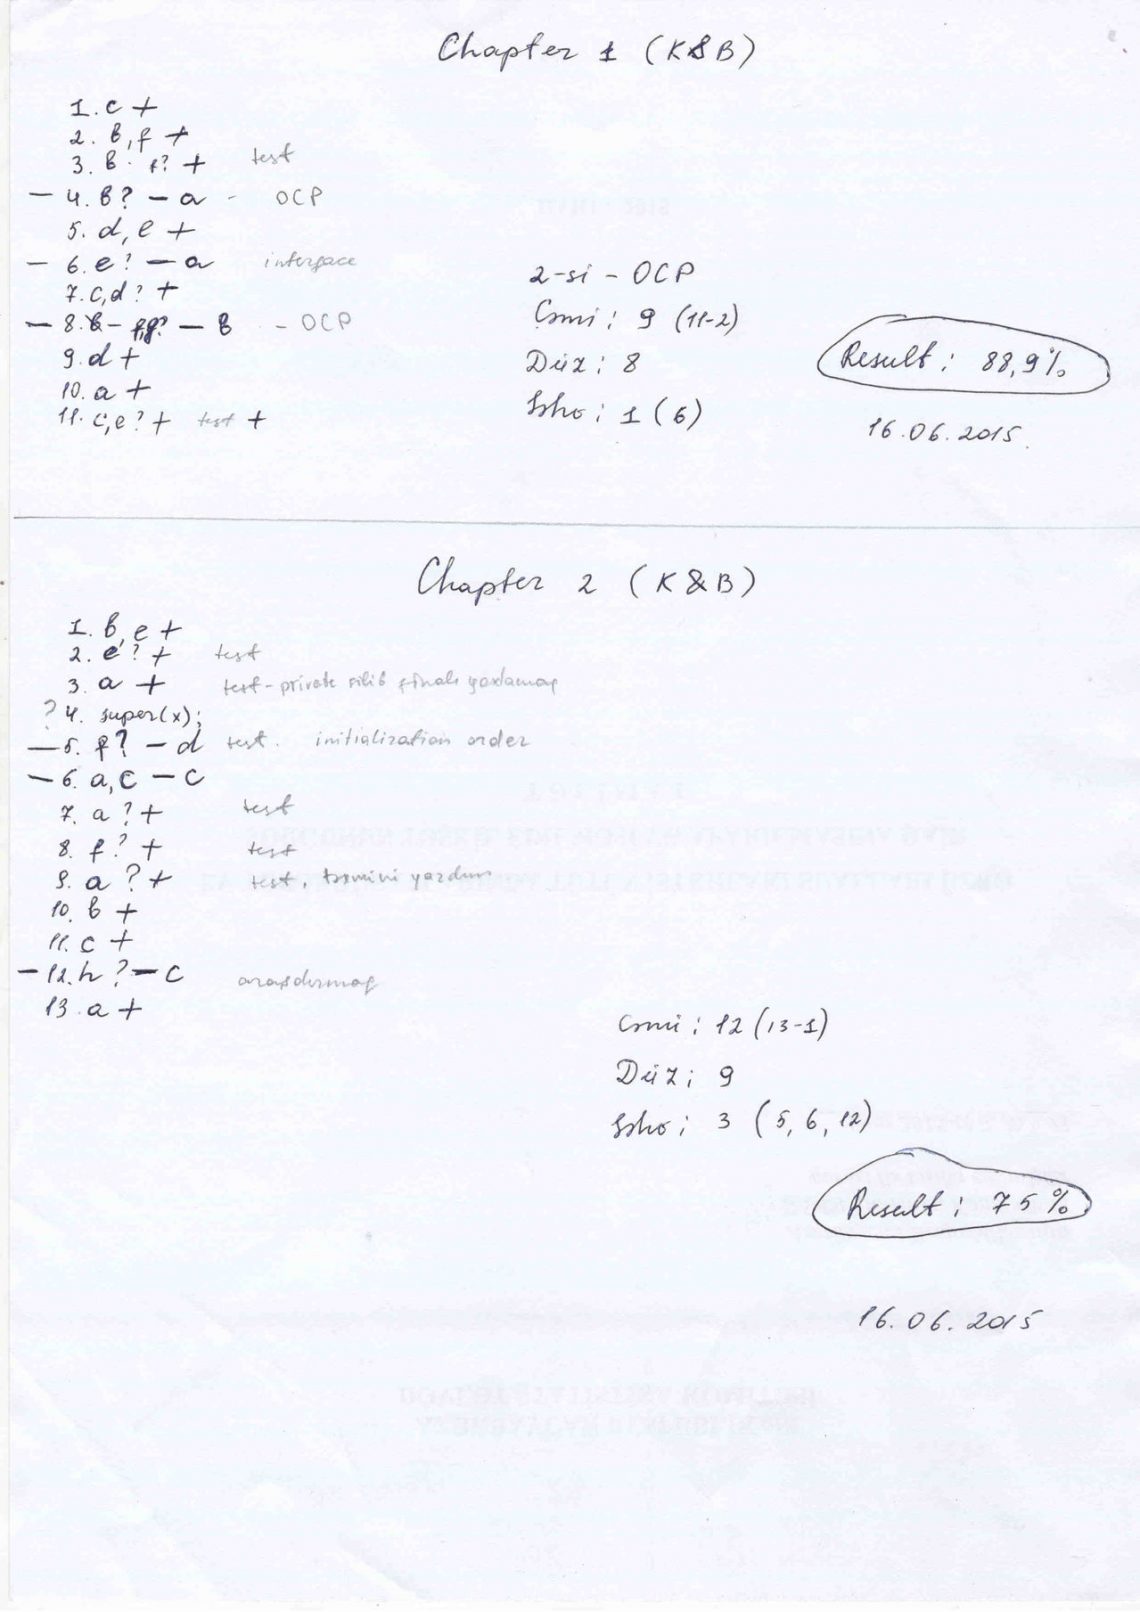 Chapter 1 (K&B)
1. c +
2. b, f +
3. b. f? + test
— 4. b? — a - OCP
5. d, e +
— 6. e? — a interface
7. c, d? +
— 8. b — f,g? — b - OCP
9. d +
10. a +
11. c, e? + test +
2-si - OCP
Cəmi: 9 (11-2)
Düz: 8
Səhv: 1 (6)
Result: 88,9%
16.06.2015.
Chapter 2 (K&B)
1. b, e +
2. e? + test
3. a + test - private silib finalı yoxlamaq
? 4. super(x);
— 5. f? — d test. initialization order
— 6. a, c — c
7. a? + test
8. f? + test
9. a? + test, təmini yazdım
10. b +
11. c +
— 12. h? — c araşdırmaq
13. a +
Cəmi: 12 (13-1)
Düz: 9
Səhv: 3 (5, 6, 12)
Result: 75%
16.06.2015